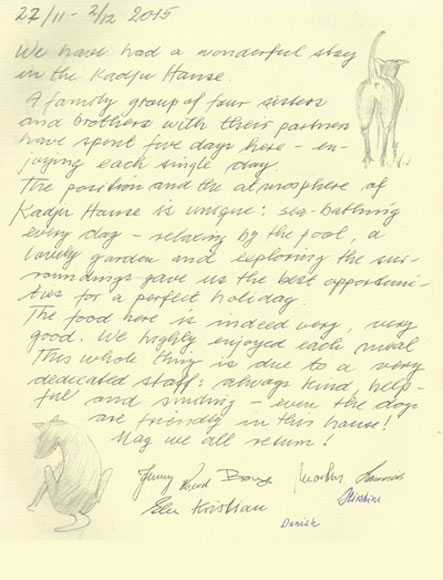 22/11 - 2/12 2015
We have had a wonderful stay
in the Kadju House.
A family group of four sisters
and brothers with their partners
have spent five days here - en-
joying each single day.
The position and the atmosphere of
Kadju House is unique: sea-bathing
every day - relaxing by the pool, a
lovely garden and exploring the sur-
roundings gave us the best opportuni-
ties for a perfect holiday.
The food here is indeed very, very
good. We highly enjoyed each meal
This whole thing is due to a very
dedicated staff: always kind, help-
ful and smiling - even the dogs
are friendly in this house!
May we all return!
Jenny
Kristian
Danish